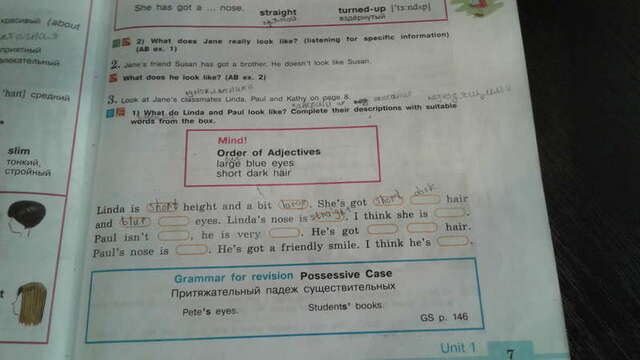 красивый (about
приятный
влекательный
'haɪt] средний
slim
тонкий,
стройный
She has got a ... nose.
straight
прямой
turned-up ['tɜ:ndʌp]
вздёрнутый
2) What does Jane really look like? (listening for specific information)
(AB ex. 1)
2. Jane's friend Susan has got a brother. He doesn't look like Susan.
What does he look like? (AB ex. 2)
3. Look at Jane's classmates Linda, Paul and Kathy on page 8.
1) What do Linda and Paul look like? Complete their descriptions with suitable
words from the box.
Mind!
Order of Adjectives
large blue eyes
short dark hair
Linda is short height and a bit large. She's got short dark hair
and blue eyes. Linda's nose is straight. I think she is .
Paul isn't , he is very . He's got hair.
Paul's nose is . He's got a friendly smile. I think he's .
Grammar for revision Possessive Case
Притяжательный падеж существительных
Pete's eyes. Students' books.
GS p. 146
Unit 1
7